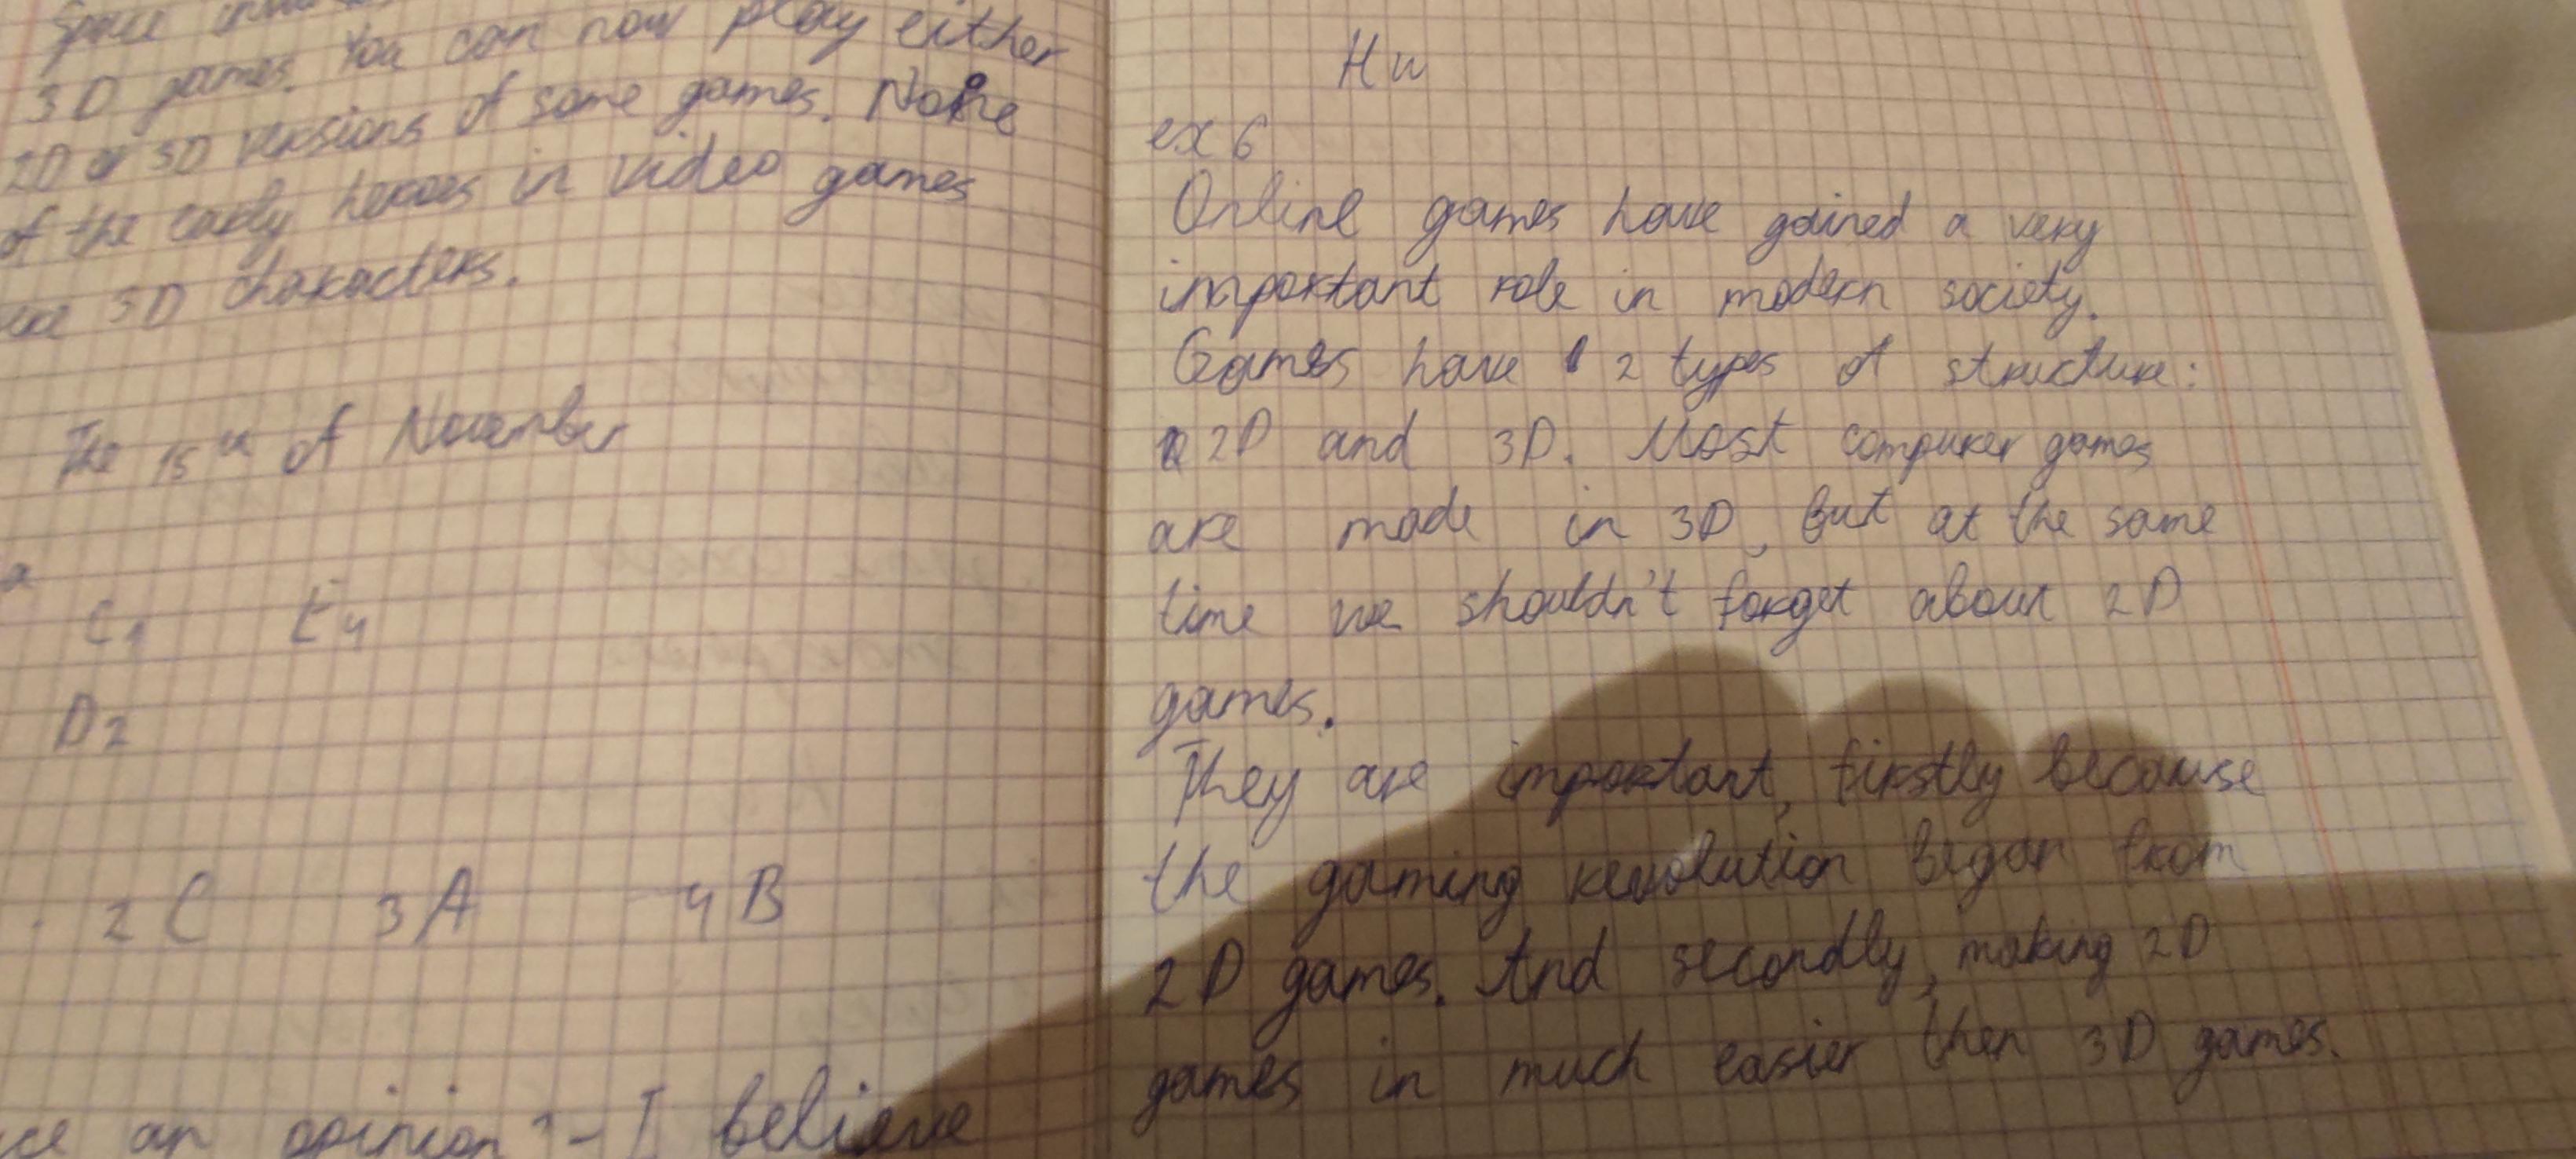 Space
3D games. You can now play either
2D or 3D versions of some games. None
of the early heroes in video games
3D characters.
The 15th of November
C1 E4
D2
2C 3A 4B
an opinion - I believe
Hw
ex 6
Online games have gained a very
important role in modern society.
Games have 2 types of structure:
2D and 3D. Most computer games
are made in 3D, but at the same
time we shouldn't forget about 2D
games.
They are important, firstly because
the gaming revolution began from
2D games. And secondly, making 2D
games in much easier then 3D games.